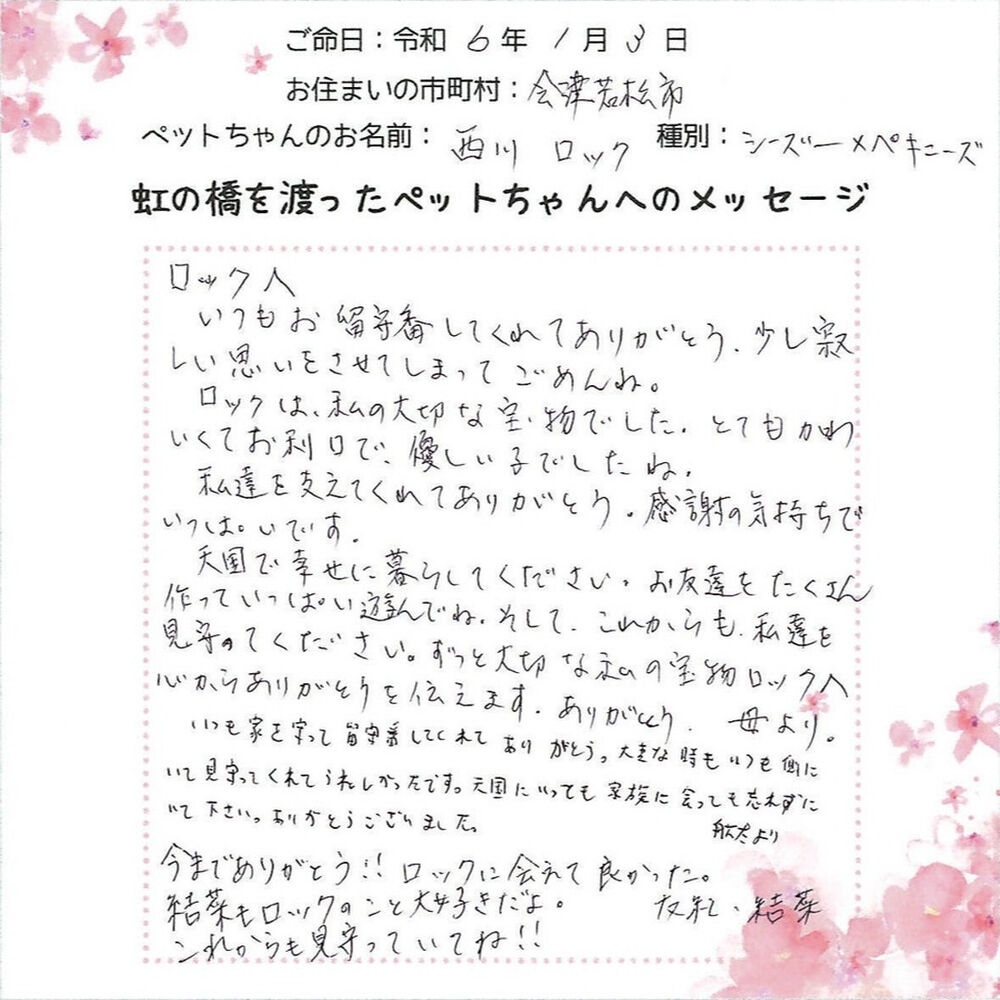 ご命日：令和 6年 1月 3日
お住まいの市町村：会津若松市
ペットちゃんのお名前： 西川 ロック 種別：シーズー×ペキニーズ
虹の橋を渡ったペットちゃんへのメッセージ
ロックへ
いつもお留守番してくれてありがとう、少し寂
しい思いをさせてしまってごめんね。
ロックは、私の大切な宝物でした。とてもかわ
いくてお利口で、優しい子でしたね。
私達を支えてくれてありがとう。感謝の気持ちで
いっぱいです。
天国で幸せに暮らしてください。お友達をたくさん
作っていっぱい遊んでね。そして、これからも、私達を
見守ってください。ずっと大切な私の宝物ロックへ
心からありがとうを伝えます。ありがとう。 母より。
いつも家を守って留守番してくれてありがとう。大変な時もいつも側に
いて見守ってくれてうれしかったです。天国にいっても家族に会っても忘れずに
いて下さい。ありがとうございました。
より
今までありがとう!!ロックに会えて良かった。
結菜もロックのこと大好きだよ。 友紀・結菜
これからも見守っていてね!!